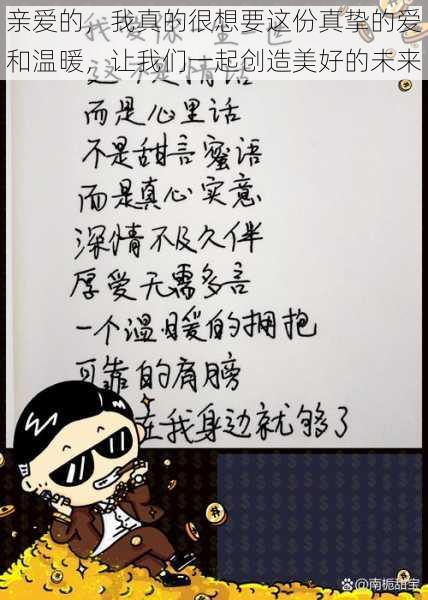 亲爱的，我真的很想要这份真挚的爱
和温暖，让我们一起创造美好的未来
这不是情话
而是心里话
不是甜言蜜语
而是真心实意
深情不及久伴
厚爱无需多言
一个温暖的拥抱
可靠的肩膀
在我身边就够了
@南栀甜宝